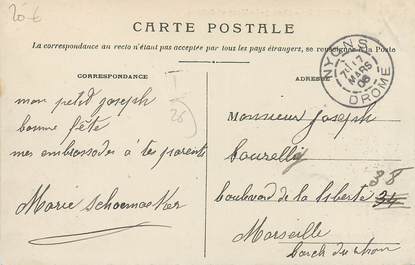 20 €
CARTE POSTALE
La correspondance au recto n'étant pas acceptée par tous les pays étrangers, se renseigner à la Poste
CORRESPONDANCE
ADRESSE
NYONS
17
MARS
06
DROME
26
mon petit Joseph
bonne fête
mes embrassades à tes parents
Marie Schoemacker
Monsieur Joseph
boulevard de la liberté 34
8
Marseille